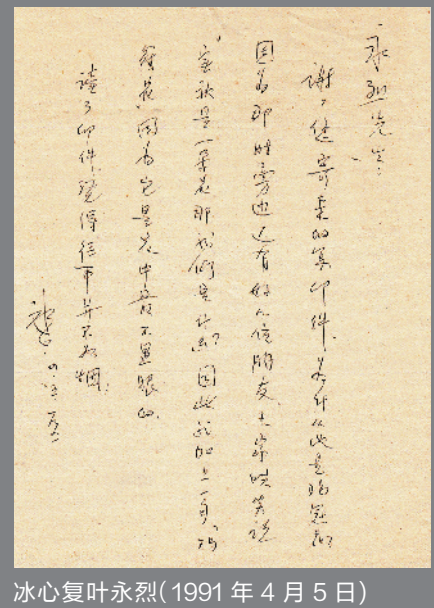 永烈先生：
谢谢您寄来的复印件，为什么说是鸡冠花
因为那时旁边还有好几位朋友，大家哄笑说
是一朵花那我们是什么？因此我加上一句，鸡
冠花，因为它是花中最不显眼的。
读了印件，觉得往事并不如烟。
冰心
冰心复叶永烈(1991年4月5日)